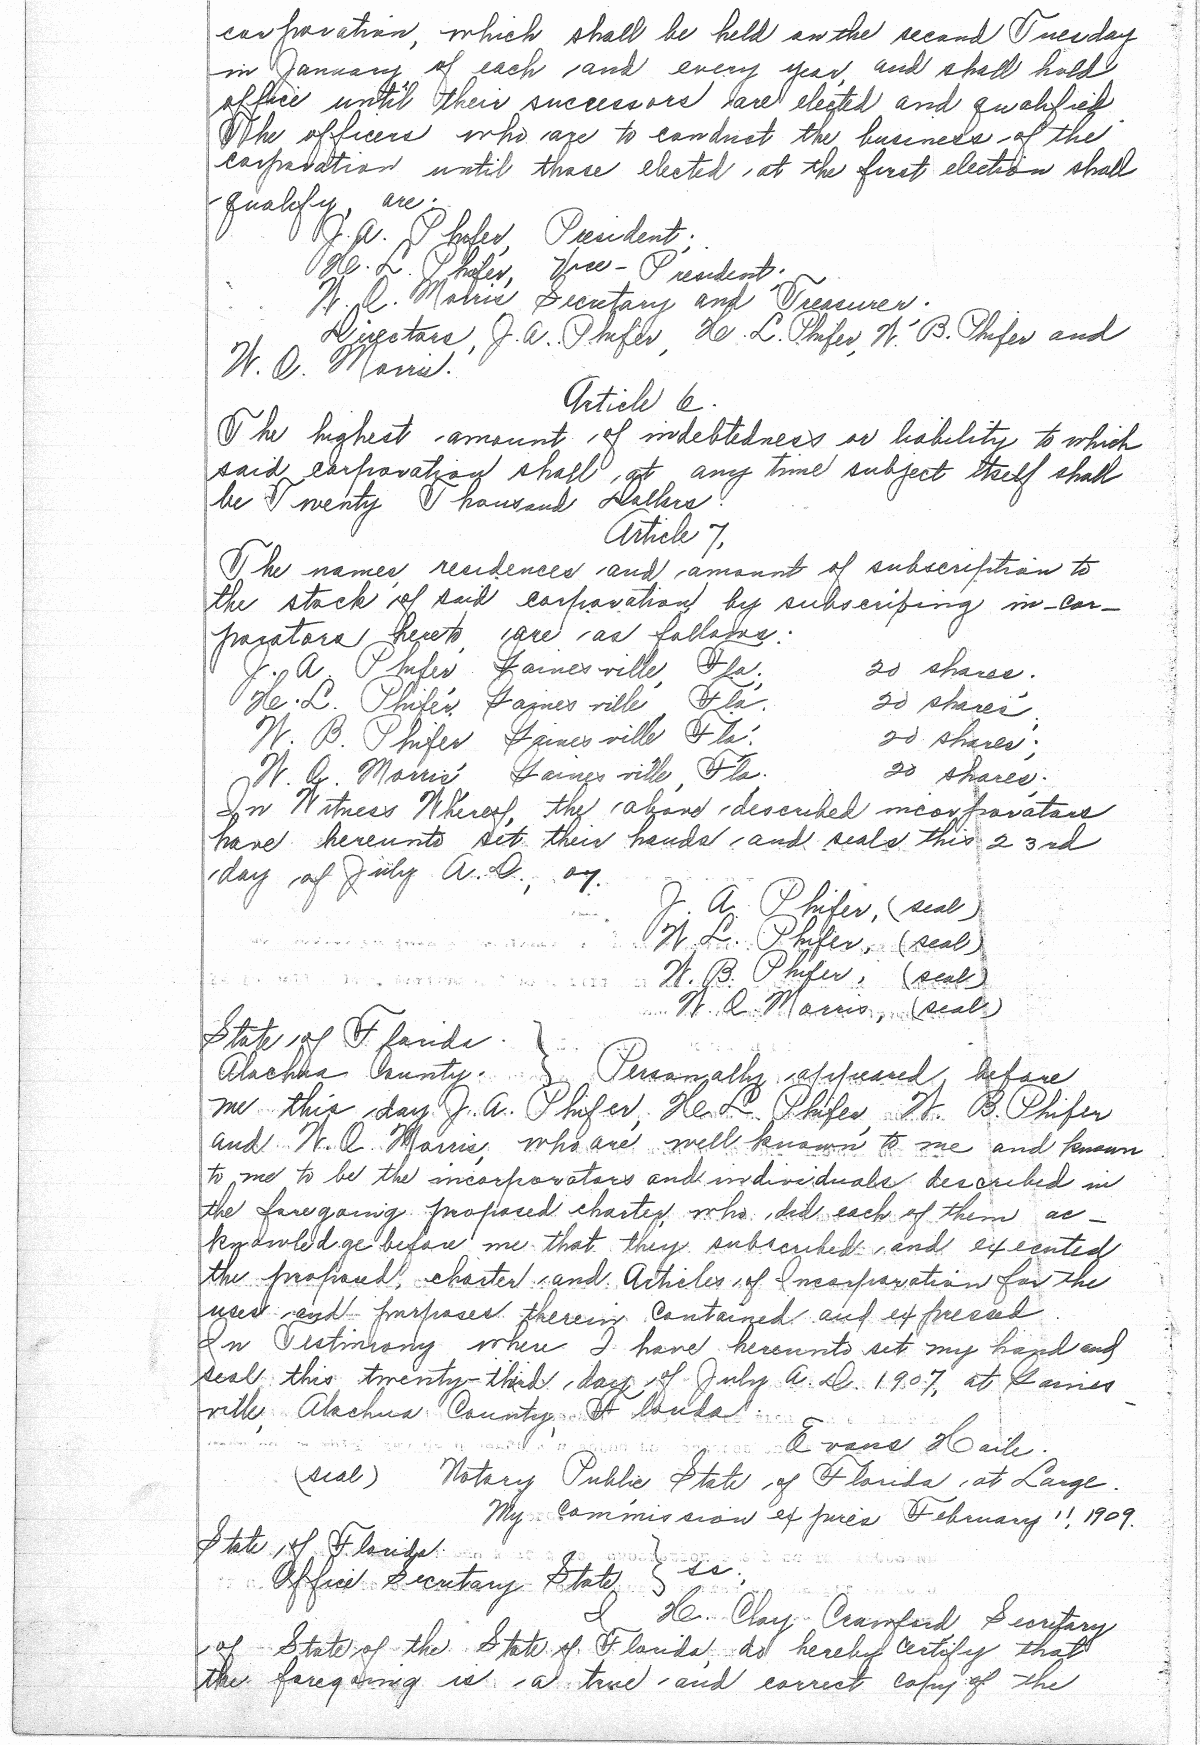 corporation, which shall be held on the second Tuesday
in January of each and every year, and shall hold
office until their successors are elected and qualified.
The officers who are to conduct the business of the
corporation until those elected at the first election shall
qualify, are:
J. A. Phifer, President;
H. L. Phifer, Vice-President;
W. O. Morris Secretary and Treasurer.
Directors, J. A. Phifer, H. L. Phifer, W. B. Phifer and
W. O. Morris.
Article 6.
The highest amount of indebtedness or liability to which
said corporation shall at any time subject itself shall
be Twenty Thousand Dollars.
Article 7,
The names, residences and amount of subscription to
the stock of said corporation by subscribing in-cor-
porators hereto are as follows:
J. A. Phifer Gainesville, Fla. 20 shares.
H. L. Phifer, Gainesville Fla. 20 shares,
W. B. Phifer Gainesville Fla. 20 shares;
W. O. Morris Gainesville, Fla. 20 shares.
In Witness Whereof, the above described incorporators
have hereunto set their hands and seals this 23rd
day of July A.D., 07.
J. A. Phifer, (seal)
H. L. Phifer, (seal)
W. B. Phifer, (seal)
W. O. Morris, (seal)
State of Florida
Alachua County. } Personally appeared before
me this day J. A. Phifer, H. L. Phifer, W. B. Phifer
and W. O. Morris, who are well known to me and known
to me to be the incorporators and individuals described in
the foregoing proposed charter, who did each of them ac-
knowledge before me that they subscribed and executed
the proposed charter and Articles of Incorporation for the
uses and purposes therein contained and expressed.
In Testimony where I have hereunto set my hand and
seal this twenty-third day of July A.D. 1907, at Gaines-
ville, Alachua County, Florida.
Evans Haile.
(seal) Notary Public State of Florida at Large.
My commission expires February 11, 1909.
State of Florida
Office Secretary State } ss.
I H. Clay Crawford Secretary
of State of the State of Florida, do hereby certify that
the foregoing is a true and correct copy of the